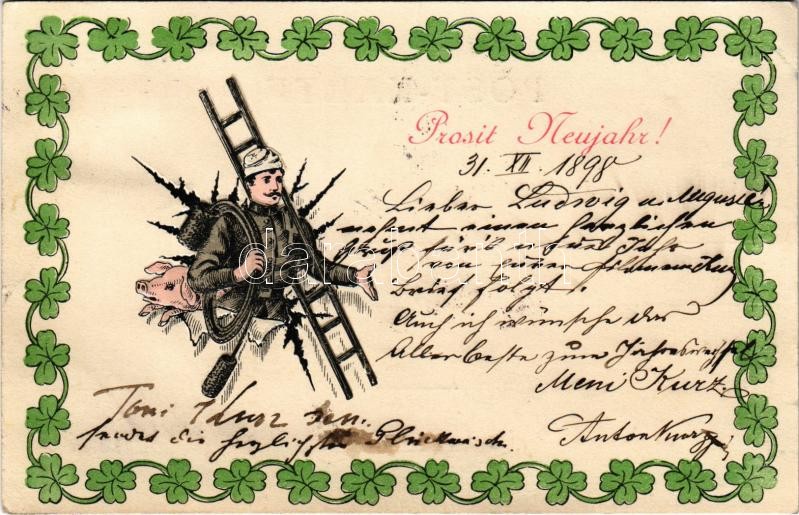 Prosit Neujahr!
31. XII. 1898
Lieber Ludwig u.
nehmt einen herzlichen
Gruß fürs neue Jahr
von
Brief folgt.
Auch ich wünsche das
Allerbeste zum Jahreswechsel
Meni Kurz.
Toni Kurz sen.
sendet die herzlichsten Glückwünsche.
Anton Kurz
darabanth